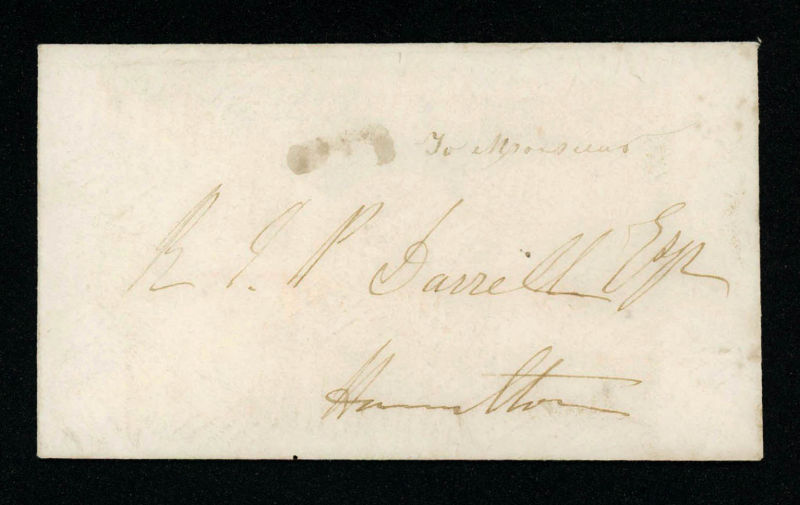 To Monsieur
R I P Darrell Esqr
Hamilton